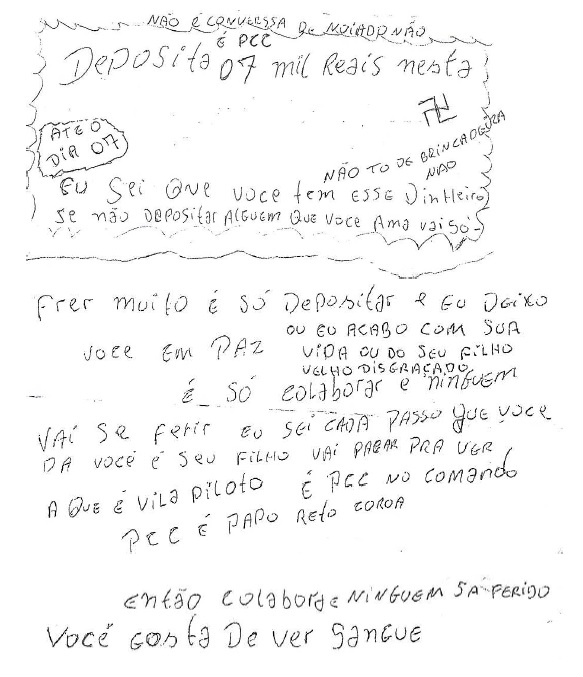 NÃO É CONVERSSA DE NOIADO NÃO
É PCC
DEPOSITA 07 mil REAIS NESTA
ATÉ O
DIA 07
NÃO TO DE BRINCADEIRA
NÃO
EU SEI QUE VOCE TEM ESSE DINHEIRO
SE NÃO DEPOSITAR ALGUEM QUE VOCE AMA VAI SÓ-
FRER MUITO É SÓ DEPOSITAR E EU DEIXO
VOCE EM PAZ
OU EU ACABO COM SUA
VIDA OU DO SEU FILHO
VELHO DISGRAÇADO
É SÓ COLABORAR E NINGUEM
VAI SE FERIR EU SEI CADA PASSO QUE VOCE
DA VOCÊ É SEU FILHO VAI PAGAR PRA VER
A QUE É VILA PILOTO É PCC NO COMANDO
PCC É PAPO RETO COROA
ENTÃO COLABORA E NINGUEM SA FERIDO
VOCÊ GOSTA DE VER SANGUE